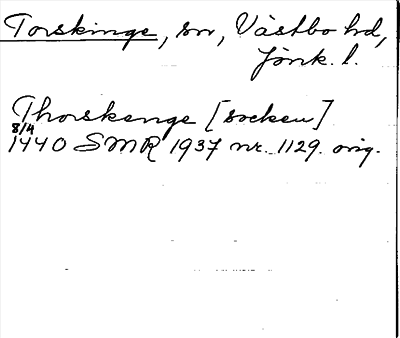 Torskinge, sn, Västbo hd,
Jönk. l.
Thorskenge [socken]
8/4
1440 SMR 1937 nr. 1129. orig.